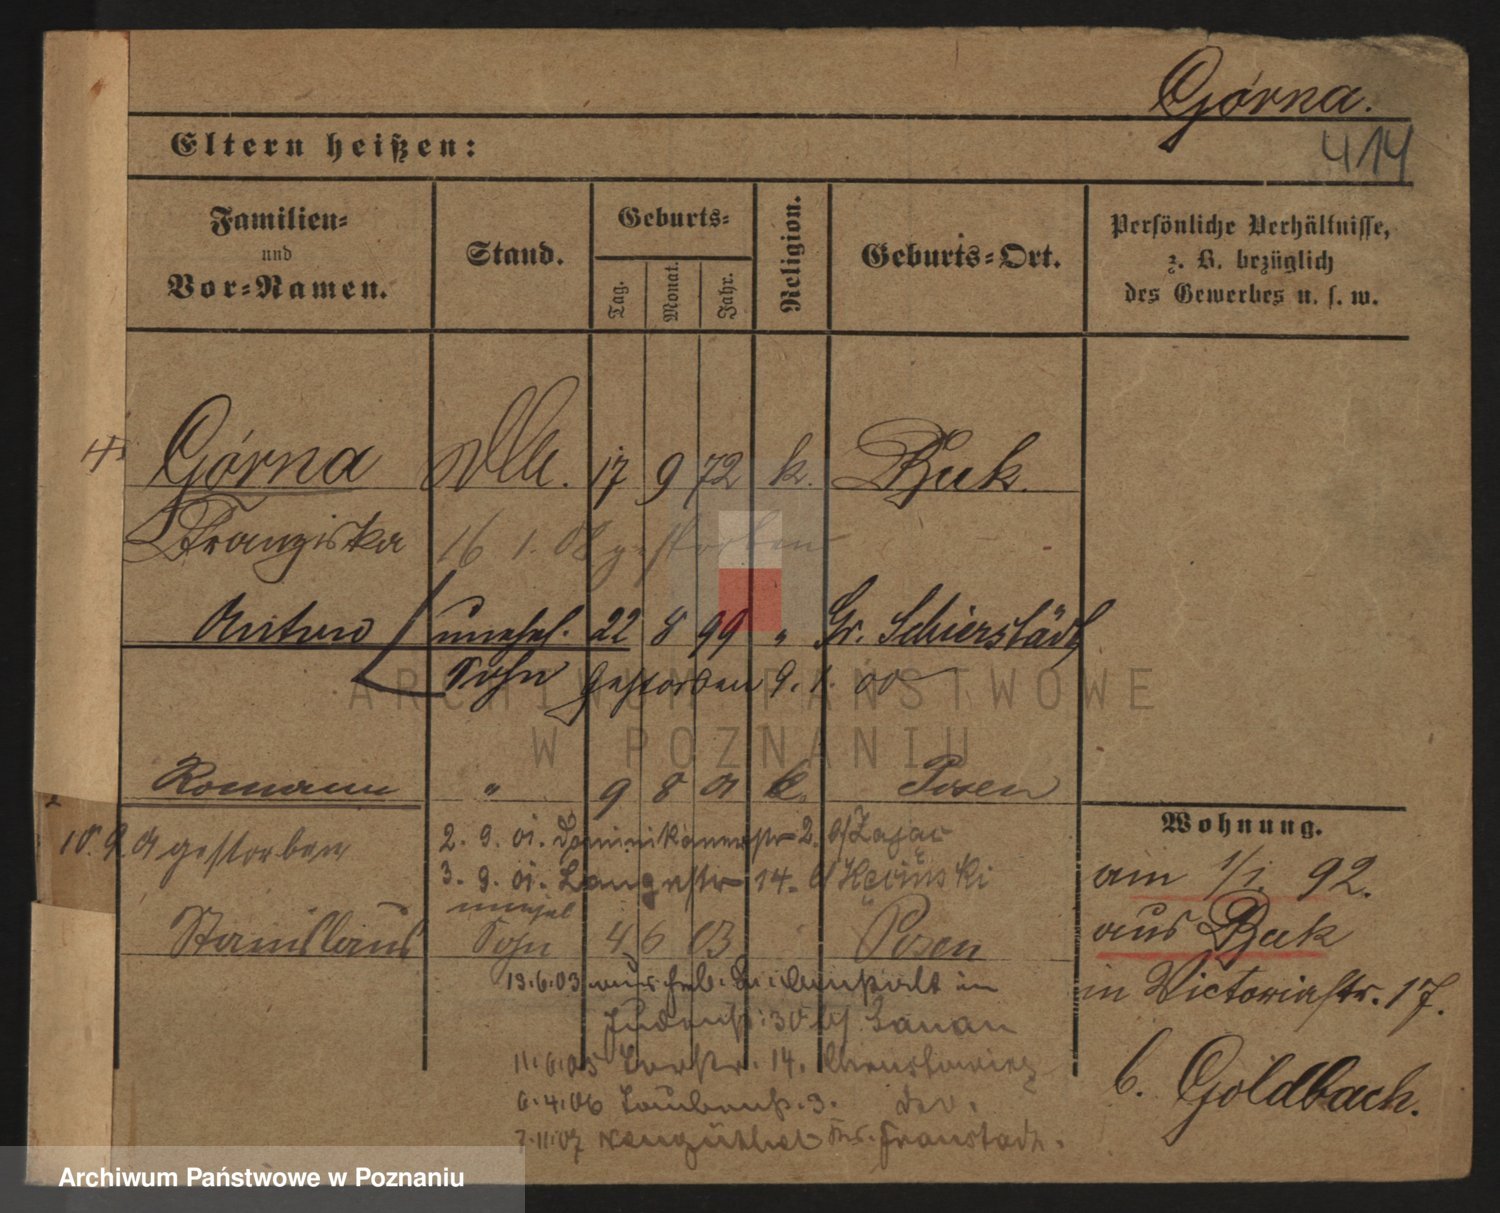 Górna.
414
Eltern heißen:
Familien- und Vor-Namen.
Stand.
Geburts-
Tag. Monat. Jahr.
Religion.
Geburts-Ort.
Persönliche Verhältnisse,
z. B. bezüglich
des Gewerbes u. s. w.
Górna 17 9 72 k. Buk.
Franziska 16 1. 08 gestorben
Anton unehel. 22 8 99 " Gr. Schierstädt
Sohn gestorben 9. 1. 00
Romann " 9 8 01 k. Posen
10. 9. 01 gestorben
2. 9. 01. Dominikanerstr 2. b/ Zając
3. 9. 01. Langestr 14. b/
unehel
Stanislaus Sohn 4 6 03 " Posen
13.6.03 aus Heb. im
Judenstr. 30 b/
11.6.05 14.
6.4.06 3.
7.11.07 Fraustadt.
Wohnung.
am 1/1. 92.
aus Buk
in Victoriastr. 17.
b. Goldbach.
ARCHIWUM PAŃSTWOWE
W POZNANIU
Archiwum Państwowe w Poznaniu